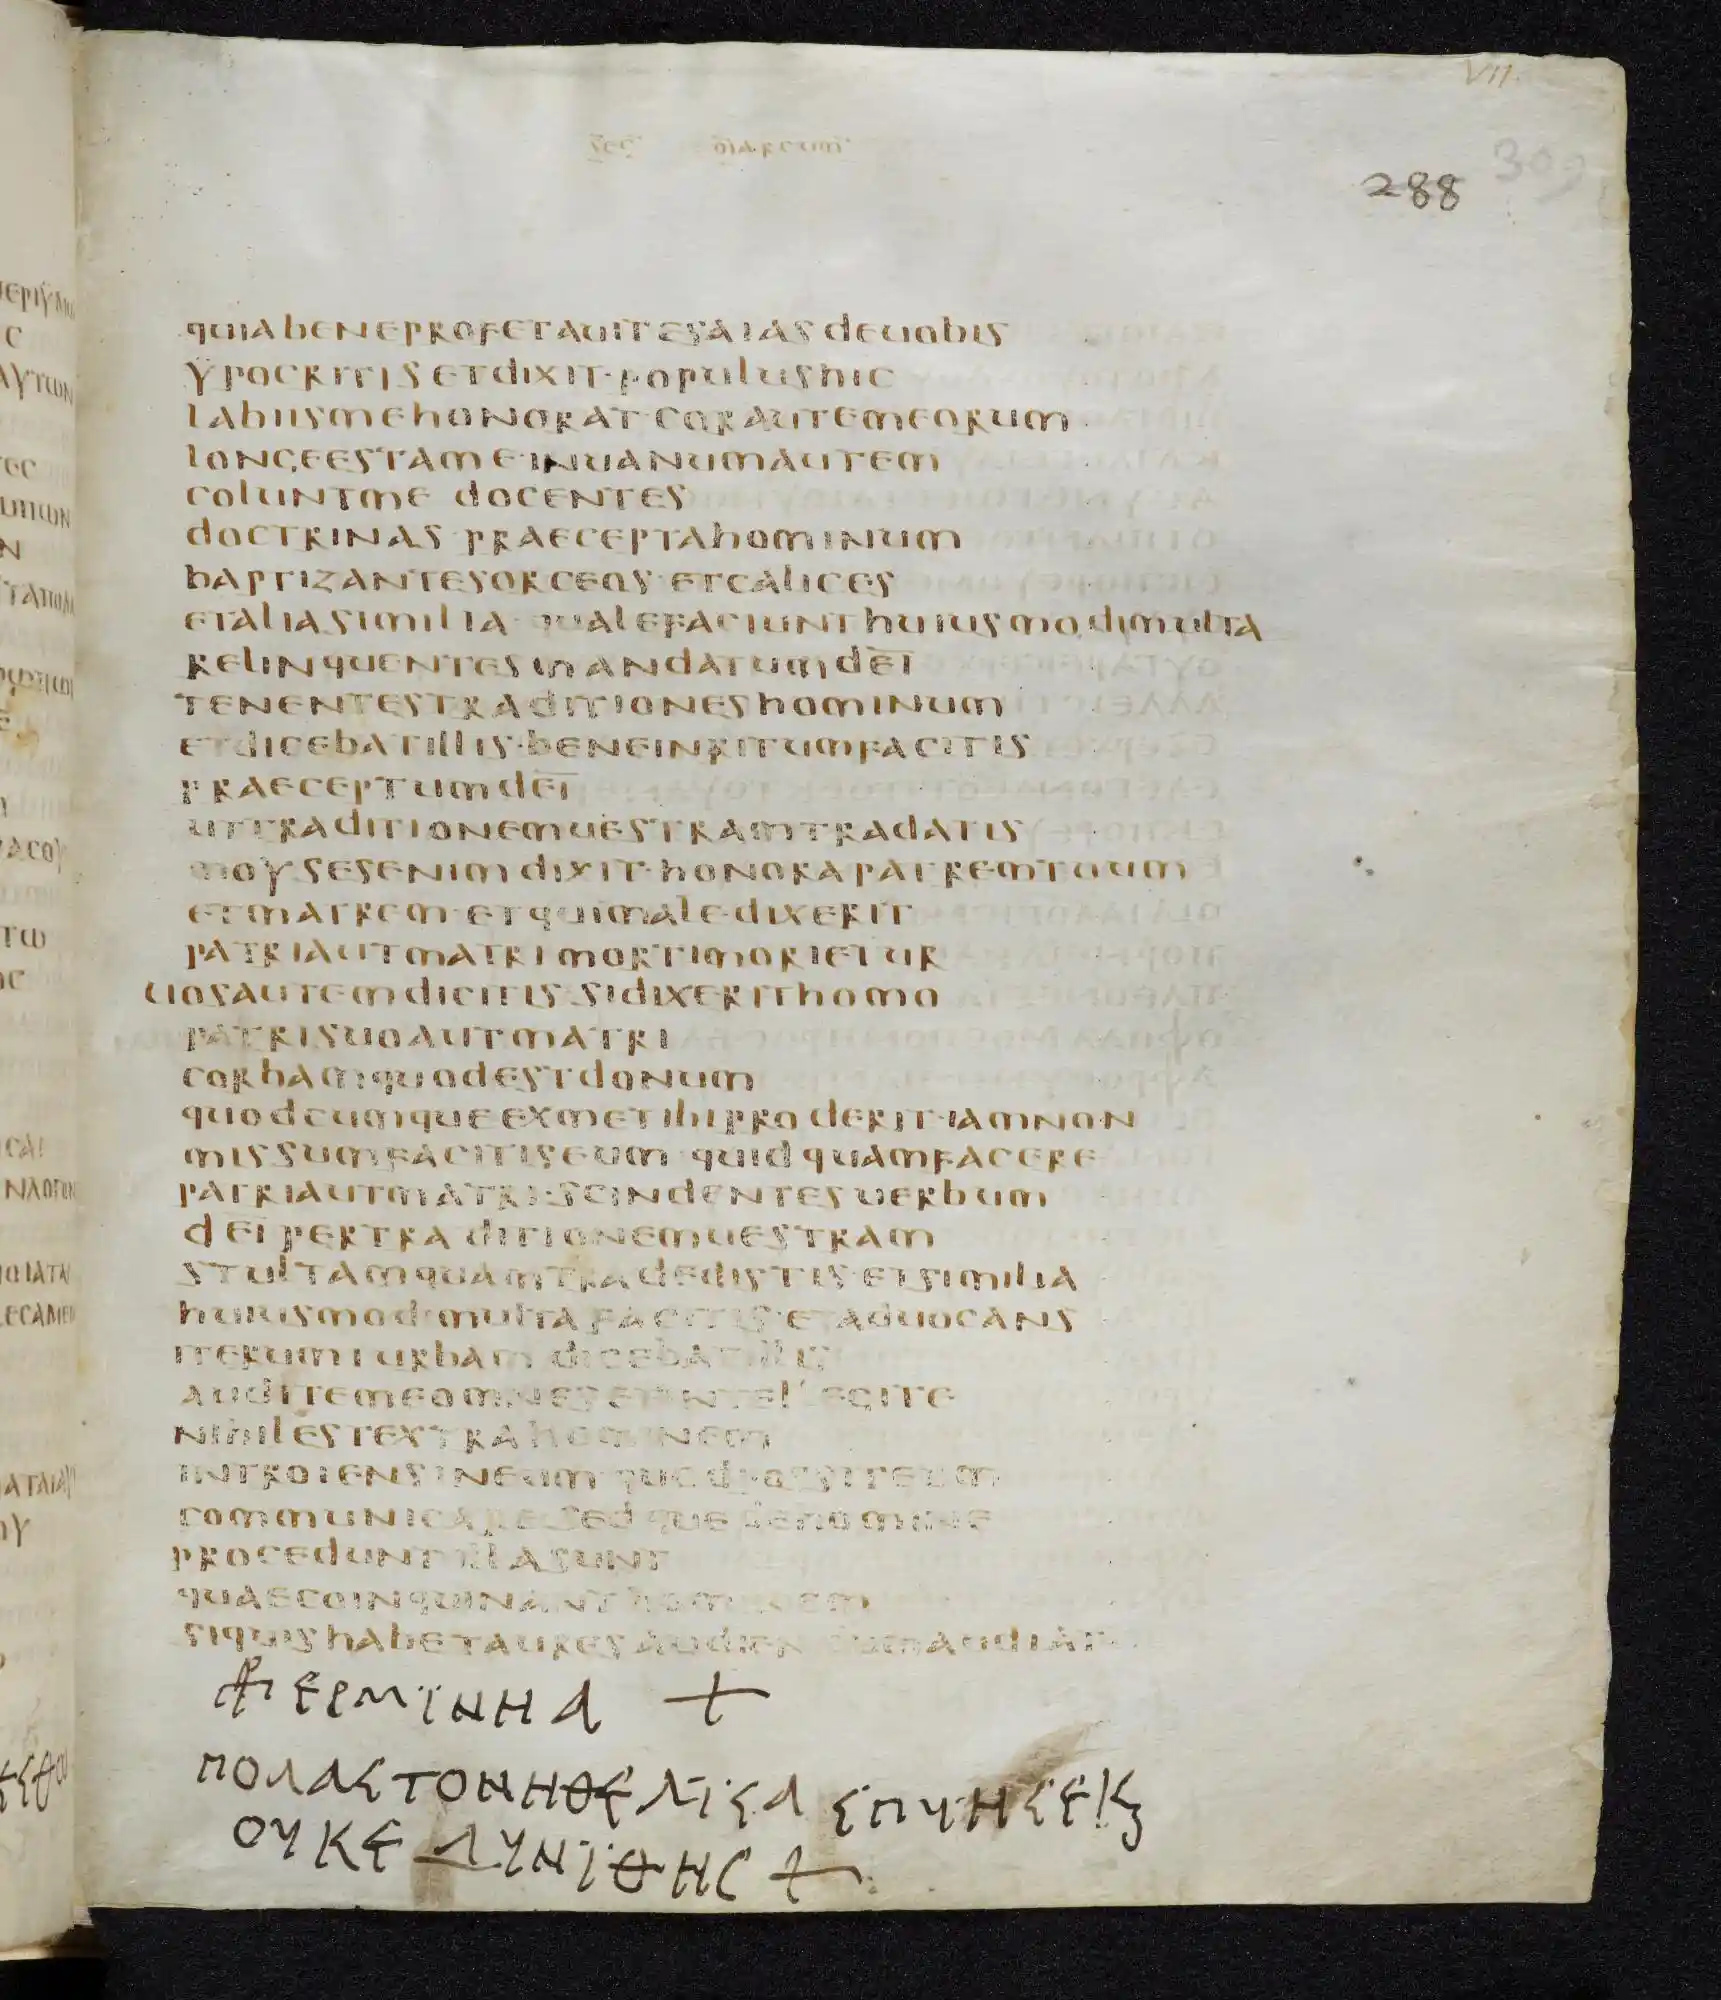 VII.
sec marcum
309
288
quiabeneprofetauitesaiasdeuobis
ypocritisetdixit·populushic
labiismehonorat·corautemeorum
longeestame·inuanumautem
coluntme docentes
doctrinas·praeceptahominum
baptizantesorceos·etcalices
etaliasimilia·qualefaciunthuiusmodimulta
relinquentesmandatumdeī
tenentestraditioneshominum
etdicebatillis·beneinritumfacitis
praeceptumdeī
uttraditionemuestramtradatis
moysesenimdixit·honorapatremtuum
etmatrem·etquimale·dixerit
patriautmatrimortimorietur
uosautemdicitis·sidixerithomo
patrisuoautmatri
corbamquodestdonum
quodcumqueexmetibiproderit·iamnon
missumfacitiseum·quidquamfacere
patriautmatri·scindentesuerbum
deipertraditionemuestram
stultamquamtradedistis·etsimilia
huiusmodimultafacitis·etaduocans
iterumturbam dicebatillis
auditemeomnesetintellegite
nihilestextrahominem
introiensineum·quodpossiteum
communicare·sedquedehomine
proceduntillasunt
quaecoinquinanthominem
siquishabetauresaudiendumaudiat
ερμϊνηα +
πολαςτονηθελϊςα ςπυηςεκ
ουκεδυνϊθης +